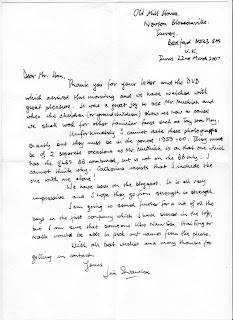 Old Mill House,
Newton Blossomville,
Turvey,
Bedford MK43 8AS
U.K.
22nd March 2007
Dear Mr. Hom,
Thank you for your letter and the DVD
which arrived this morning and we have watched with
great pleasure. It was a great joy to see Mr Muthiah and
when the children (or grandchildren) show us how to pause
we shall look for other familiar faces such as Tiny Soo May.
Unfortunately I cannot date these photographs
exactly but they must be in the period 1959-60. They must
be of 2 separate occasions as Mr. Muthiah is on that one which
has the GB & BB combined, but is not on the BB only. I
cannot think why. Catherine insists that I include the
one with me alone!
We have been on the blogspot. It is all very
impressive and I hope they go from strength to strength.
I am going to send further for a list of all the
boys in the first company which I have stored in the loft,
but I am sure that someone like
would be able to pick out names from the photo.
With all best wishes and many thanks for
getting in contact.
Yours
Jim